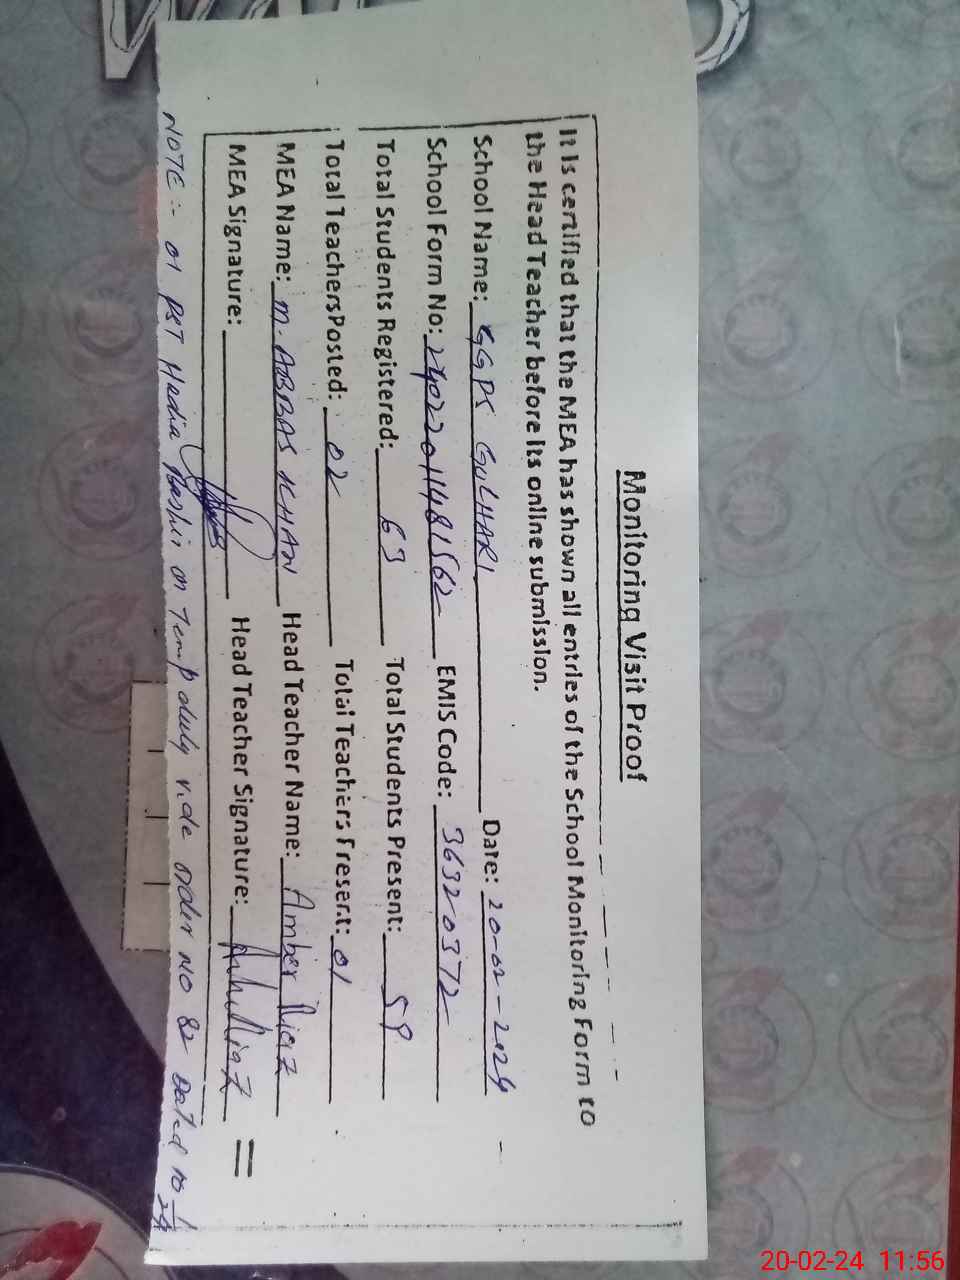 Monitoring Visit Proof
It is certified that the MEA has shown all entries of the School Monitoring Form to
the Head Teacher before its online submission.
School Name: GGPS GULHARI Date: 20-02-2024
School Form No: 24022011481562 EMIS Code: 36320372
Total Students Registered: 63 Total Students Present: 59
Total Teachers Posted: 02 Total Teachers Present: 01
MEA Name: M. ABBAS KHAN Head Teacher Name: Amber Niaz
MEA Signature: Head Teacher Signature:
NOTE :- 01 PST Hadia Bashir on Temp duly vide order NO 82 Dated
20-02-24 11:56